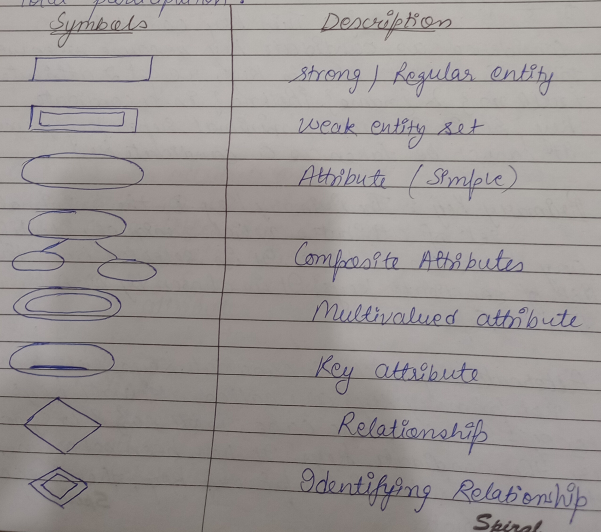 total participation.
Symbols Description
Strong / Regular entity
Weak entity set
Attribute (Simple)
Composite Attributes
Multivalued attribute
Key attribute
Relationship
Identifying Relationship
Spiral